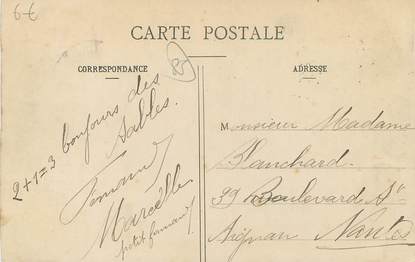 6€
CARTE POSTALE
85
CORRESPONDANCE
ADRESSE
2+1=3 bonjours des
Sables.
Fernand
Marcelle
petit fernand
Monsieur Madame
Blanchard.
39 Boulevard St
Aignan Nantes